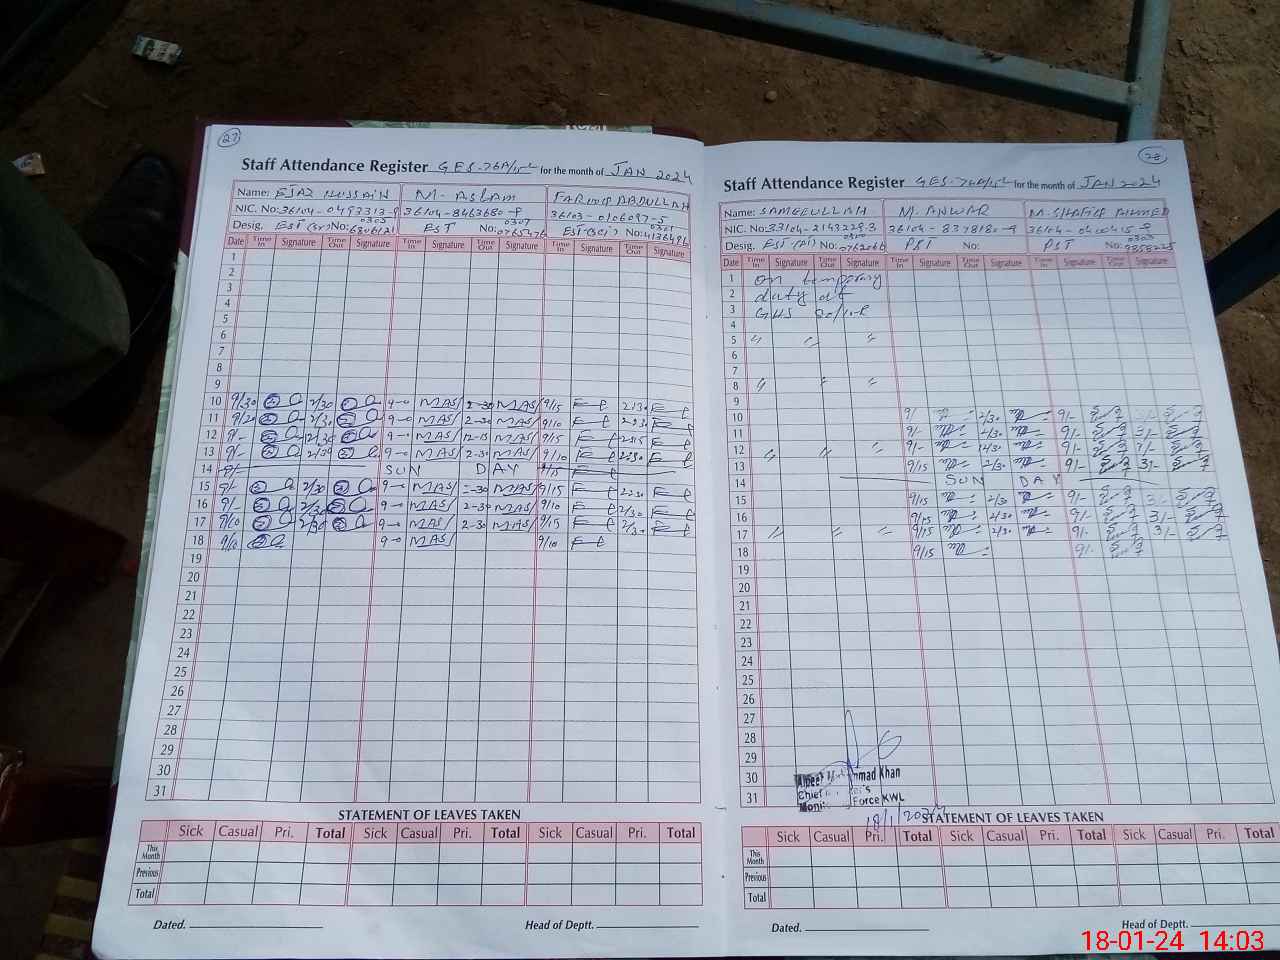 27
Staff Attendance Register GES-76A/15-L for the month of JAN 2024
Name: EJAZ HUSSAIN M- ASLAM FARUKH ABDULLAH
NIC. No: 36104-0493313-9 36104-8463680-9 36103-0106097-5
Desig. EST No: EST No: EST (Sci) No:
Date Time In Signature Time Out Signature Time In Signature Time Out Signature Time In Signature Time Out Signature
1
2
3
4
5
6
7
8
9
10 9/30 2/30 9-0 MAS 2-30 MAS 9/15 2/30
11 9/20 2/30 9-0 MAS 2-30 MAS 9/10 2-30
12 9/- 12/30 9-0 MAS 12-15 MAS 9/15
13 9/- 2/30 9-0 MAS 2-30 MAS 9/10 2-30
14 SUN DAY
15 9/- 2/30 9-0 MAS 2-30 MAS 9/15 2-30
16 9/- 2/30 9-0 MAS 2-30 MAS 9/10 2/30
17 9/10 2/30 9-0 MAS 2-30 MAS 9/15 2/30
18 9/10 9-0 MAS 9/10
19
20
21
22
23
24
25
26
27
28
29
30
31
STATEMENT OF LEAVES TAKEN
Sick Casual Pri. Total Sick Casual Pri. Total Sick Casual Pri. Total
This Month
Previous
Total
Dated. Head of Deptt.
28
Staff Attendance Register GES-76A/15-L for the month of JAN 2024
Name: SAMEEULLAH M. ANWAR M. SHAFIQ AHMED
NIC. No: 33104-2143228-3 36104-8378180-9 36104-0400415-9
Desig. EST (AT) No: PST No: PST No:
Date Time In Signature Time Out Signature Time In Signature Time Out Signature Time In Signature Time Out Signature
1 On temporary
2 duty at
3 GHS
4
5 〃 〃 〃
6
7
8 〃 〃 〃
9
10 9/ 2/30 9/- 3/-
11 9/- 2/30 9/- 3/-
12 〃 〃 〃 9/- 2/30 9/- 3/-
13 9/15 2/30 9/- 3/-
14 SUN DAY
15 9/15 2/30 9/- 3/-
16 9/15 2/30 9/- 3/-
17 〃 〃 〃 9/15 2/30 9/- 3/-
18 9/15 9/-
19
20
21
22
23
24
25
26
27
28
29
30
31
Khan
Chief
Force KWL
18/1/2024
STATEMENT OF LEAVES TAKEN
Sick Casual Pri. Total Sick Casual Pri. Total Sick Casual Pri. Total
This Month
Previous
Total
Dated. Head of Deptt.
18-01-24 14:03